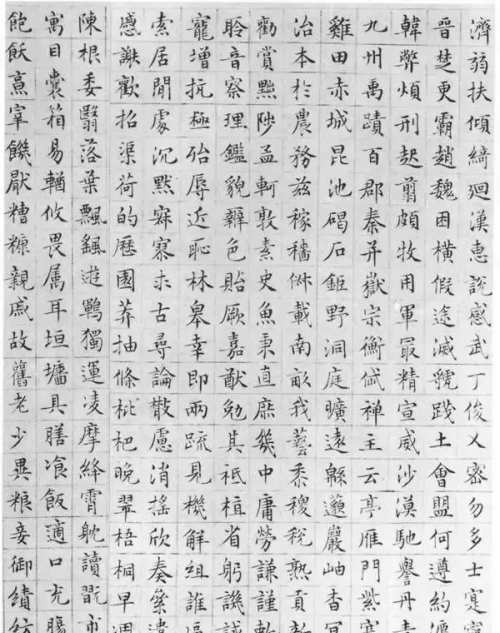 濟弱扶傾綺迴漢惠說感武丁俊乂密勿多士寔寧
晉楚更霸趙魏困橫假途滅虢踐土會盟何遵約
韓弊煩刑起翦頗牧用軍最精宣威沙漠馳譽丹青
九州禹蹟百郡秦并嶽宗衡岱禪主云亭雁門紫
雞田赤城昆池碣石鉅野洞庭曠遠緜邈巖岫杳
治本於農務茲稼穡俶載南畝我藝黍稷稅熟貢新
勸賞黜陟孟軻敦素史魚秉直庶幾中庸勞謙謹
聆音察理鑑貌辨色貽厥嘉猷勉其祗植省躬譏誡
寵增抗極殆辱近恥林皋幸即兩疏見機解組誰逼
索居閒處沉默寂寥求古尋論散慮消搖欣奏累遣
慼謝歡招渠荷的歷園莽抽條枇杷晚翠梧桐早凋
陳根委翳落葉飄颻遊鵾獨運凌摩絳霄耽讀翫市
寓目囊箱易輶攸畏属耳垣墻具膳飡飯適口充腸
飽飫烹宰饑厭糟糠親戚故舊老少異糧妾御績紡